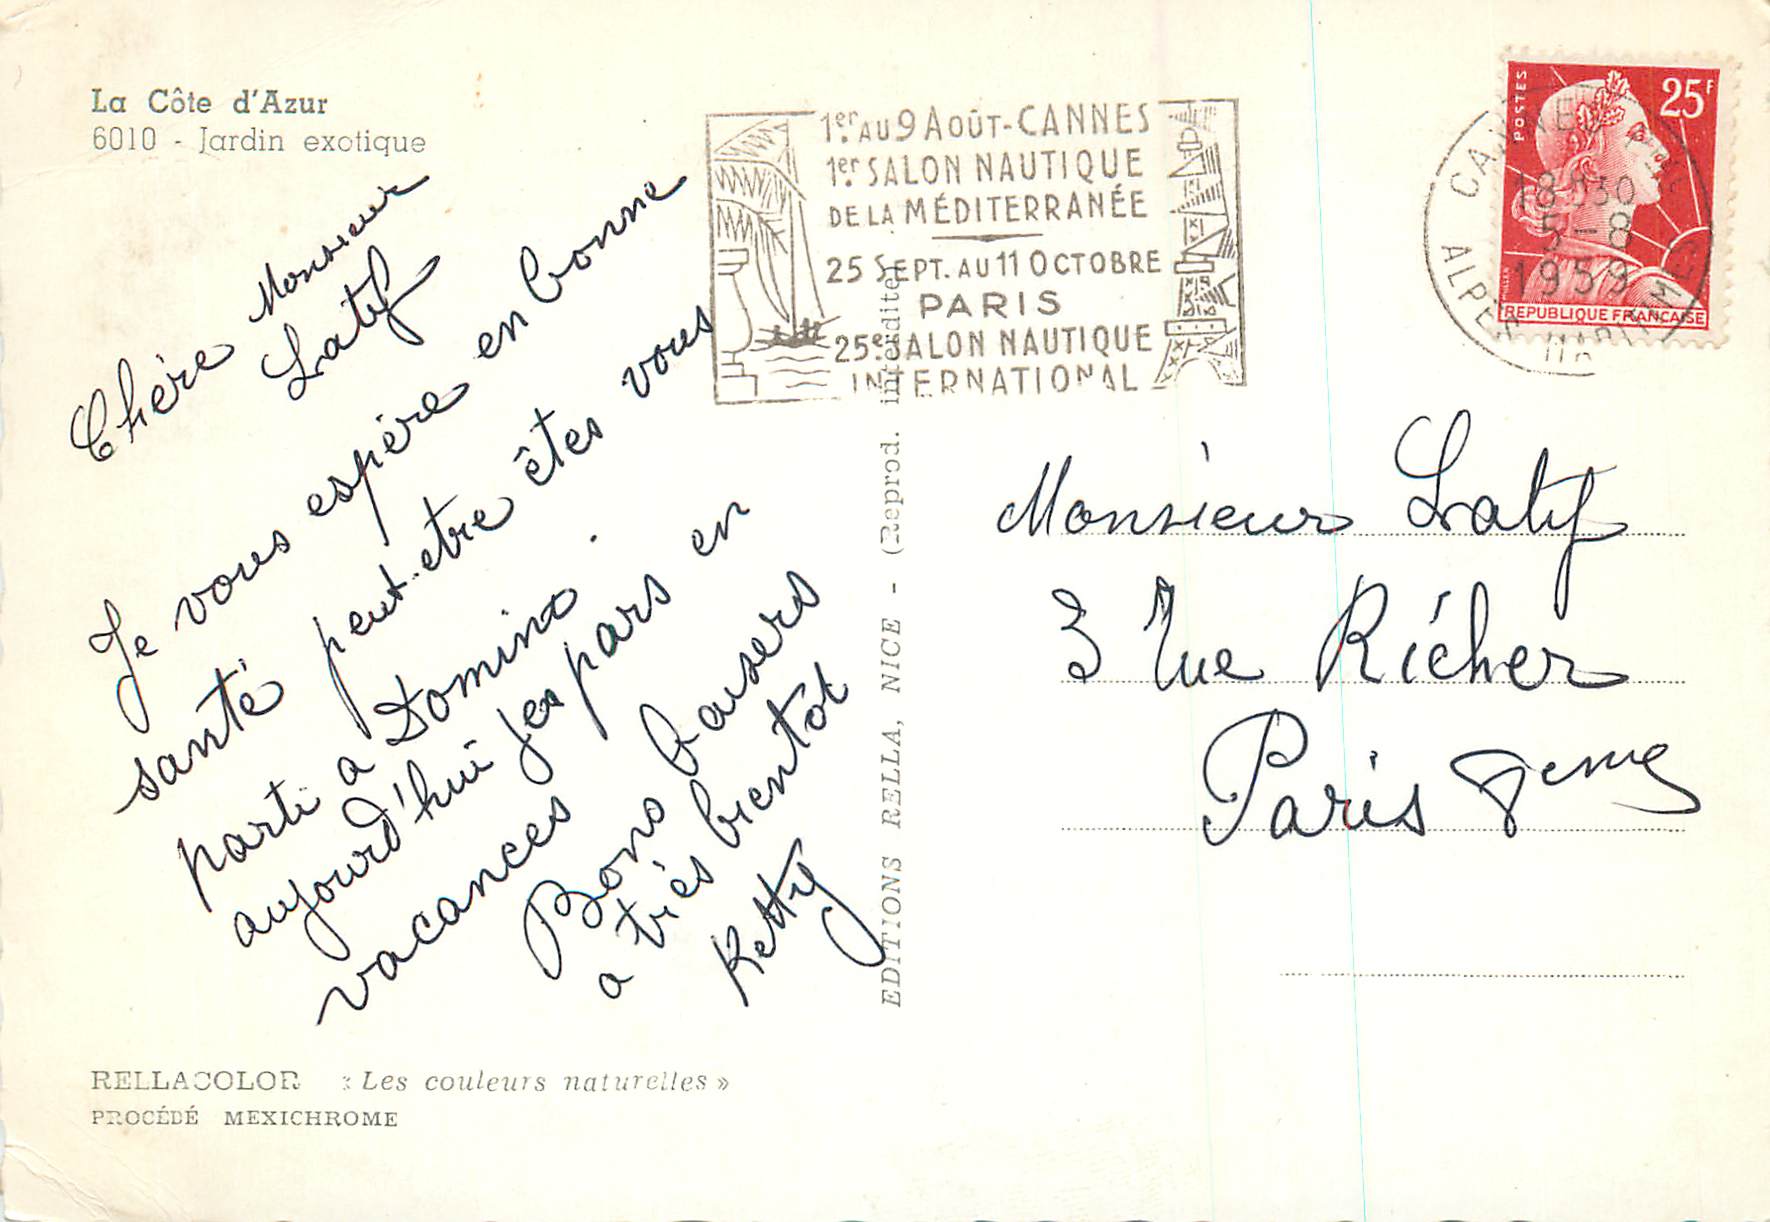 La Côte d'Azur
6010 - Jardin exotique
Chère Monsieur
Latif
Je vous espère en bonne
santé peut-etre êtes vous
parti a Domino.
aujourd'hui jes pars en
vacances
Bons baisers
a très bientôt
Ketty
RELLACOLOR « Les couleurs naturelles »
PROCÉDÉ MEXICHROME
EDITIONS RELLA, NICE - (Reprod. interdite)
1er AU 9 AOÛT-CANNES
1er SALON NAUTIQUE
DE LA MÉDITERRANÉE
25 SEPT. AU 11 OCTOBRE
PARIS
25e SALON NAUTIQUE
INTERNATIONAL
CANNES
18H30
5-8
1959
ALPES MARITIMES
POSTES
25F
REPUBLIQUE FRANCAISE
Monsieur Latif
3 rue Richer
Paris 9eme